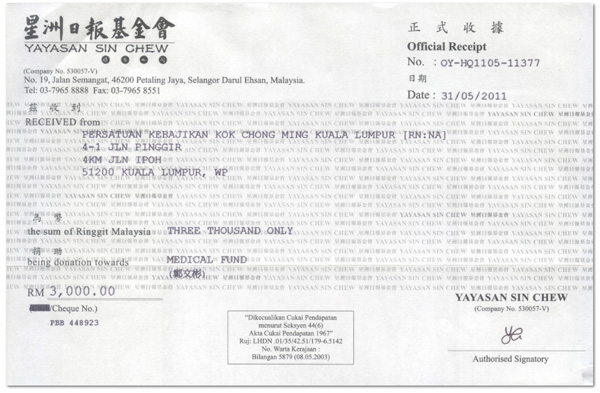 星洲日報基金會
YAYASAN SIN CHEW
(Company No. 530057-V)
No. 19, Jalan Semangat, 46200 Petaling Jaya, Selangor Darul Ehsan, Malaysia.
Tel: 03-7965 8888 Fax: 03-7965 8551
正式收據
Official Receipt
No. : OY-HQ1105-11377
日期
Date : 31/05/2011
茲收到
RECEIVED from
PERSATUAN KEBAJIKAN KOK CHONG MING KUALA LUMPUR [RN:NA]
4-1 JLN PINGGIR
4KM JLN IPOH
51200 KUALA LUMPUR, WP
馬幣
the sum of Ringgit Malaysia THREE THOUSAND ONLY
捐助
being donation towards MEDICAL FUND
(鄭文彬)
RM 3,000.00
/Cheque No.)
PBB 448923
"Dikecualikan Cukai Pendapatan
menurut Seksyen 44(6)
Akta Cukai Pendapatan 1967"
Ruj: LHDN .01/35/42.51/179-6.5142
No. Warta Kerajaan :
Bilangan 5879 (08.05.2003)
YAYASAN SIN CHEW
(Company No. 530057-V)
Authorised Signatory